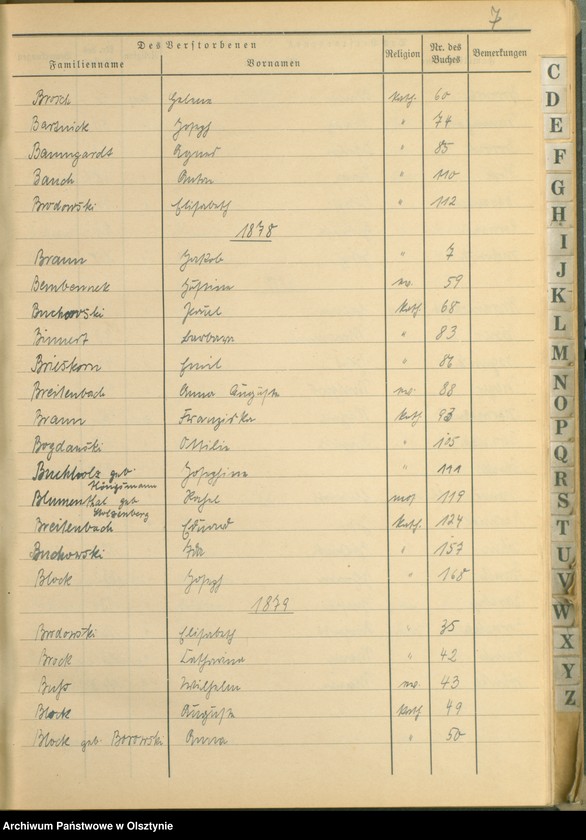 7
Des Verstorbenen
Familienname Vornamen Religion Nr. des Buches Bemerkungen
Brosch Helene Kath. 60
Bartnick Joseph " 74
Baumgardt Agnes " 85
Bauch Anton " 110
Brodowski Elisabeth " 112
1878
Braun Jakob " 7
Bembennek ev. 59
Buchowski Kath 68
Binnert Barbara " 83
Brieskorn Emil " 86
Breitenbach Anna Auguste ev. 88
Braun Franziska Kath 93
Bogdanski Ottilie " 105
Buchholz geb Josephine " 111
Königsmann
Blumenthal geb Rahel mos 119
Breitenbach Eduard Kath. 124
Buchowski Ida " 157
Block Joseph " 168
1879
Brodowski Elisabeth " 35
Brock Catharina " 42
Wilhelm ev. 43
Block Auguste Kath 49
Block geb. Borowski Anna " 50
C
D
E
F
G
H
I
J
K
L
M
N
O
P
Q
R
S
T
U
V
W
X
Y
Z
Archiwum Państwowe w Olsztynie